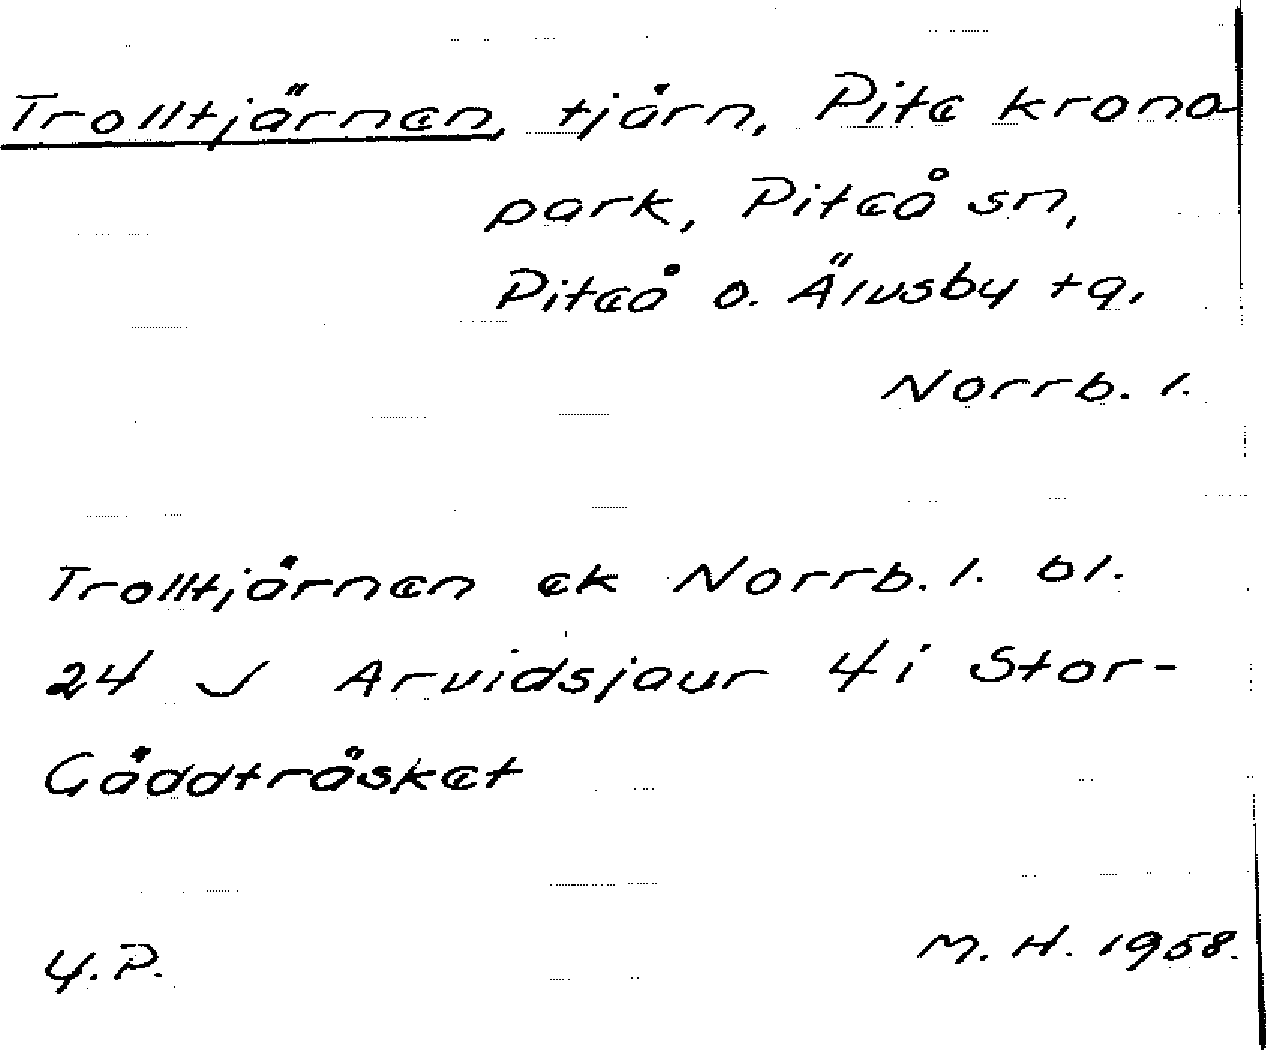 Trolltjärnen, tjärn, Pite krono-
park, Piteå sn,
Piteå o. Älvsby tg,
Norrb. l.
Trolltjärnen ek Norrb. l. bl.
24 J Arvidsjaur 4 i Stor-
Gäddträsket
Y. P.
M. H. 1958.